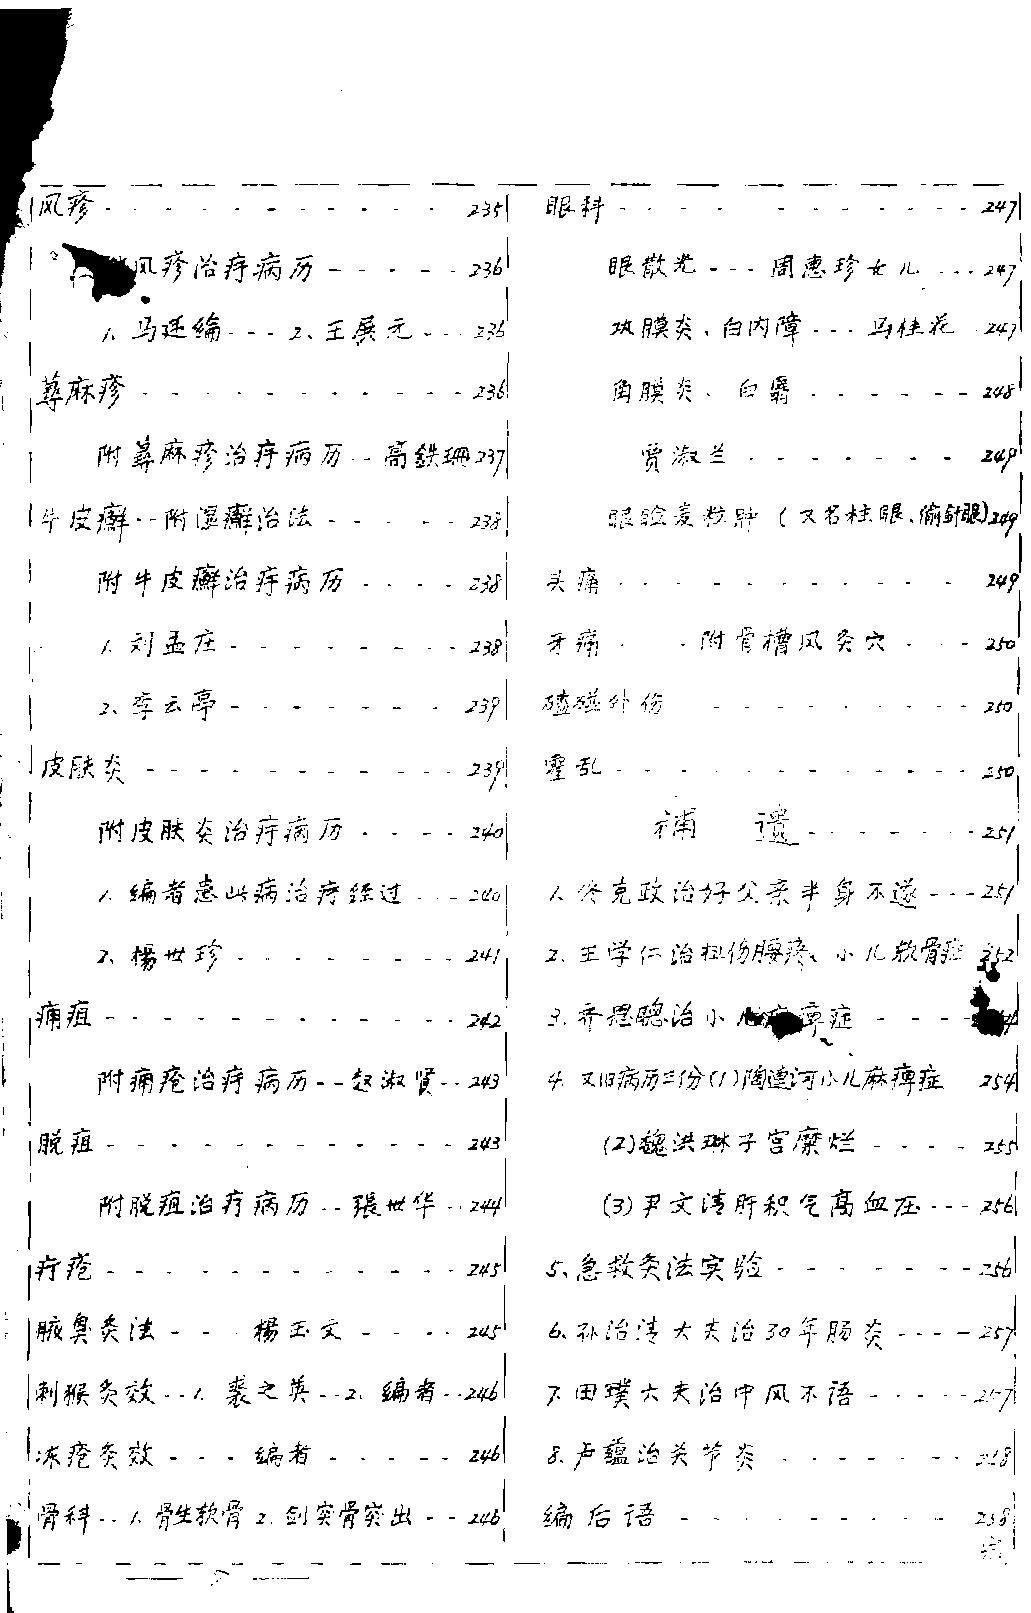 风疹 - - - - - - - - - - - - 235
风疹治疗病历 - - - - - 236
1. 马廷编 - - - 2、王展元 - - - 236
荨麻疹 - - - - - - - - - - - 236
附荨麻疹治疗病历 - - 高鉄珊 237
牛皮癣 - - 附湿癣治法 - - - - - 238
附牛皮癣治疗病历 - - - - 238
1. 刘孟庄 - - - - - - - - 238
2、李云亭 - - - - - - - - 239
皮肤炎 - - - - - - - - - - - 239
附皮肤炎治疗病历 - - - - 240
1. 编者患此病治疗经过 - - - 240
2、楊世珍 - - - - - - - - 241
痈疽 - - - - - - - - - - - - 242
附痈疮治疗病历 - - 赵淑贤 - - 243
脱疽 - - - - - - - - - - - - 243
附脱疽治疗病历 - - 張世华 - - 244
疔疮 - - - - - - - - - - - - 245
腋臭灸法 - - - 楊玉文 - - - - 245
刺猴灸效 - - 1. 裴之英 - - 2. 编者 - - 246
冻疮灸效 - - - 编者 - - - - - 246
骨科 - - 1. 骨生软骨 2. 剑突骨突出 - - 246
眼科 - - - - - - - - - - - - 247
眼散光 - - - 周惠珍女儿 - - - 247
巩膜炎、白内障 - - - 马桂花 247
角膜炎、白翳 - - - - - - 248
贾淑兰 - - - - - - - - 249
眼睑麦粒肿（又名柱眼、偷针眼）249
头痛 - - - - - - - - - - - - 249
牙痛 - - 附骨槽风灸穴 - - - 250
磕碰外伤 - - - - - - - - - 250
霍乱 - - - - - - - - - - - - 250
補 遗 - - - - - - 251
1. 佟克政治好父亲半身不遂 - - - 251
2. 王学仁治扭伤腰疼、小儿软骨症 252
3. 齐思聪治小儿麻痺症 - - -
4. 又旧病历三份(1)陶德河小儿麻痺症 254
(2)魏洪琳子宫糜烂 - - - - 255
(3)尹文清肝积气高血压 - - - 256
5、急救灸法实验 - - - - - - - 256
6、孙治清大夫治30年肠炎 - - - - 257
7. 田璞大夫治中风不语 - - - - - 257
8. 卢蕴治关节炎 - - - - - - - 258
编后语 - - - - - - - - - - 258
完